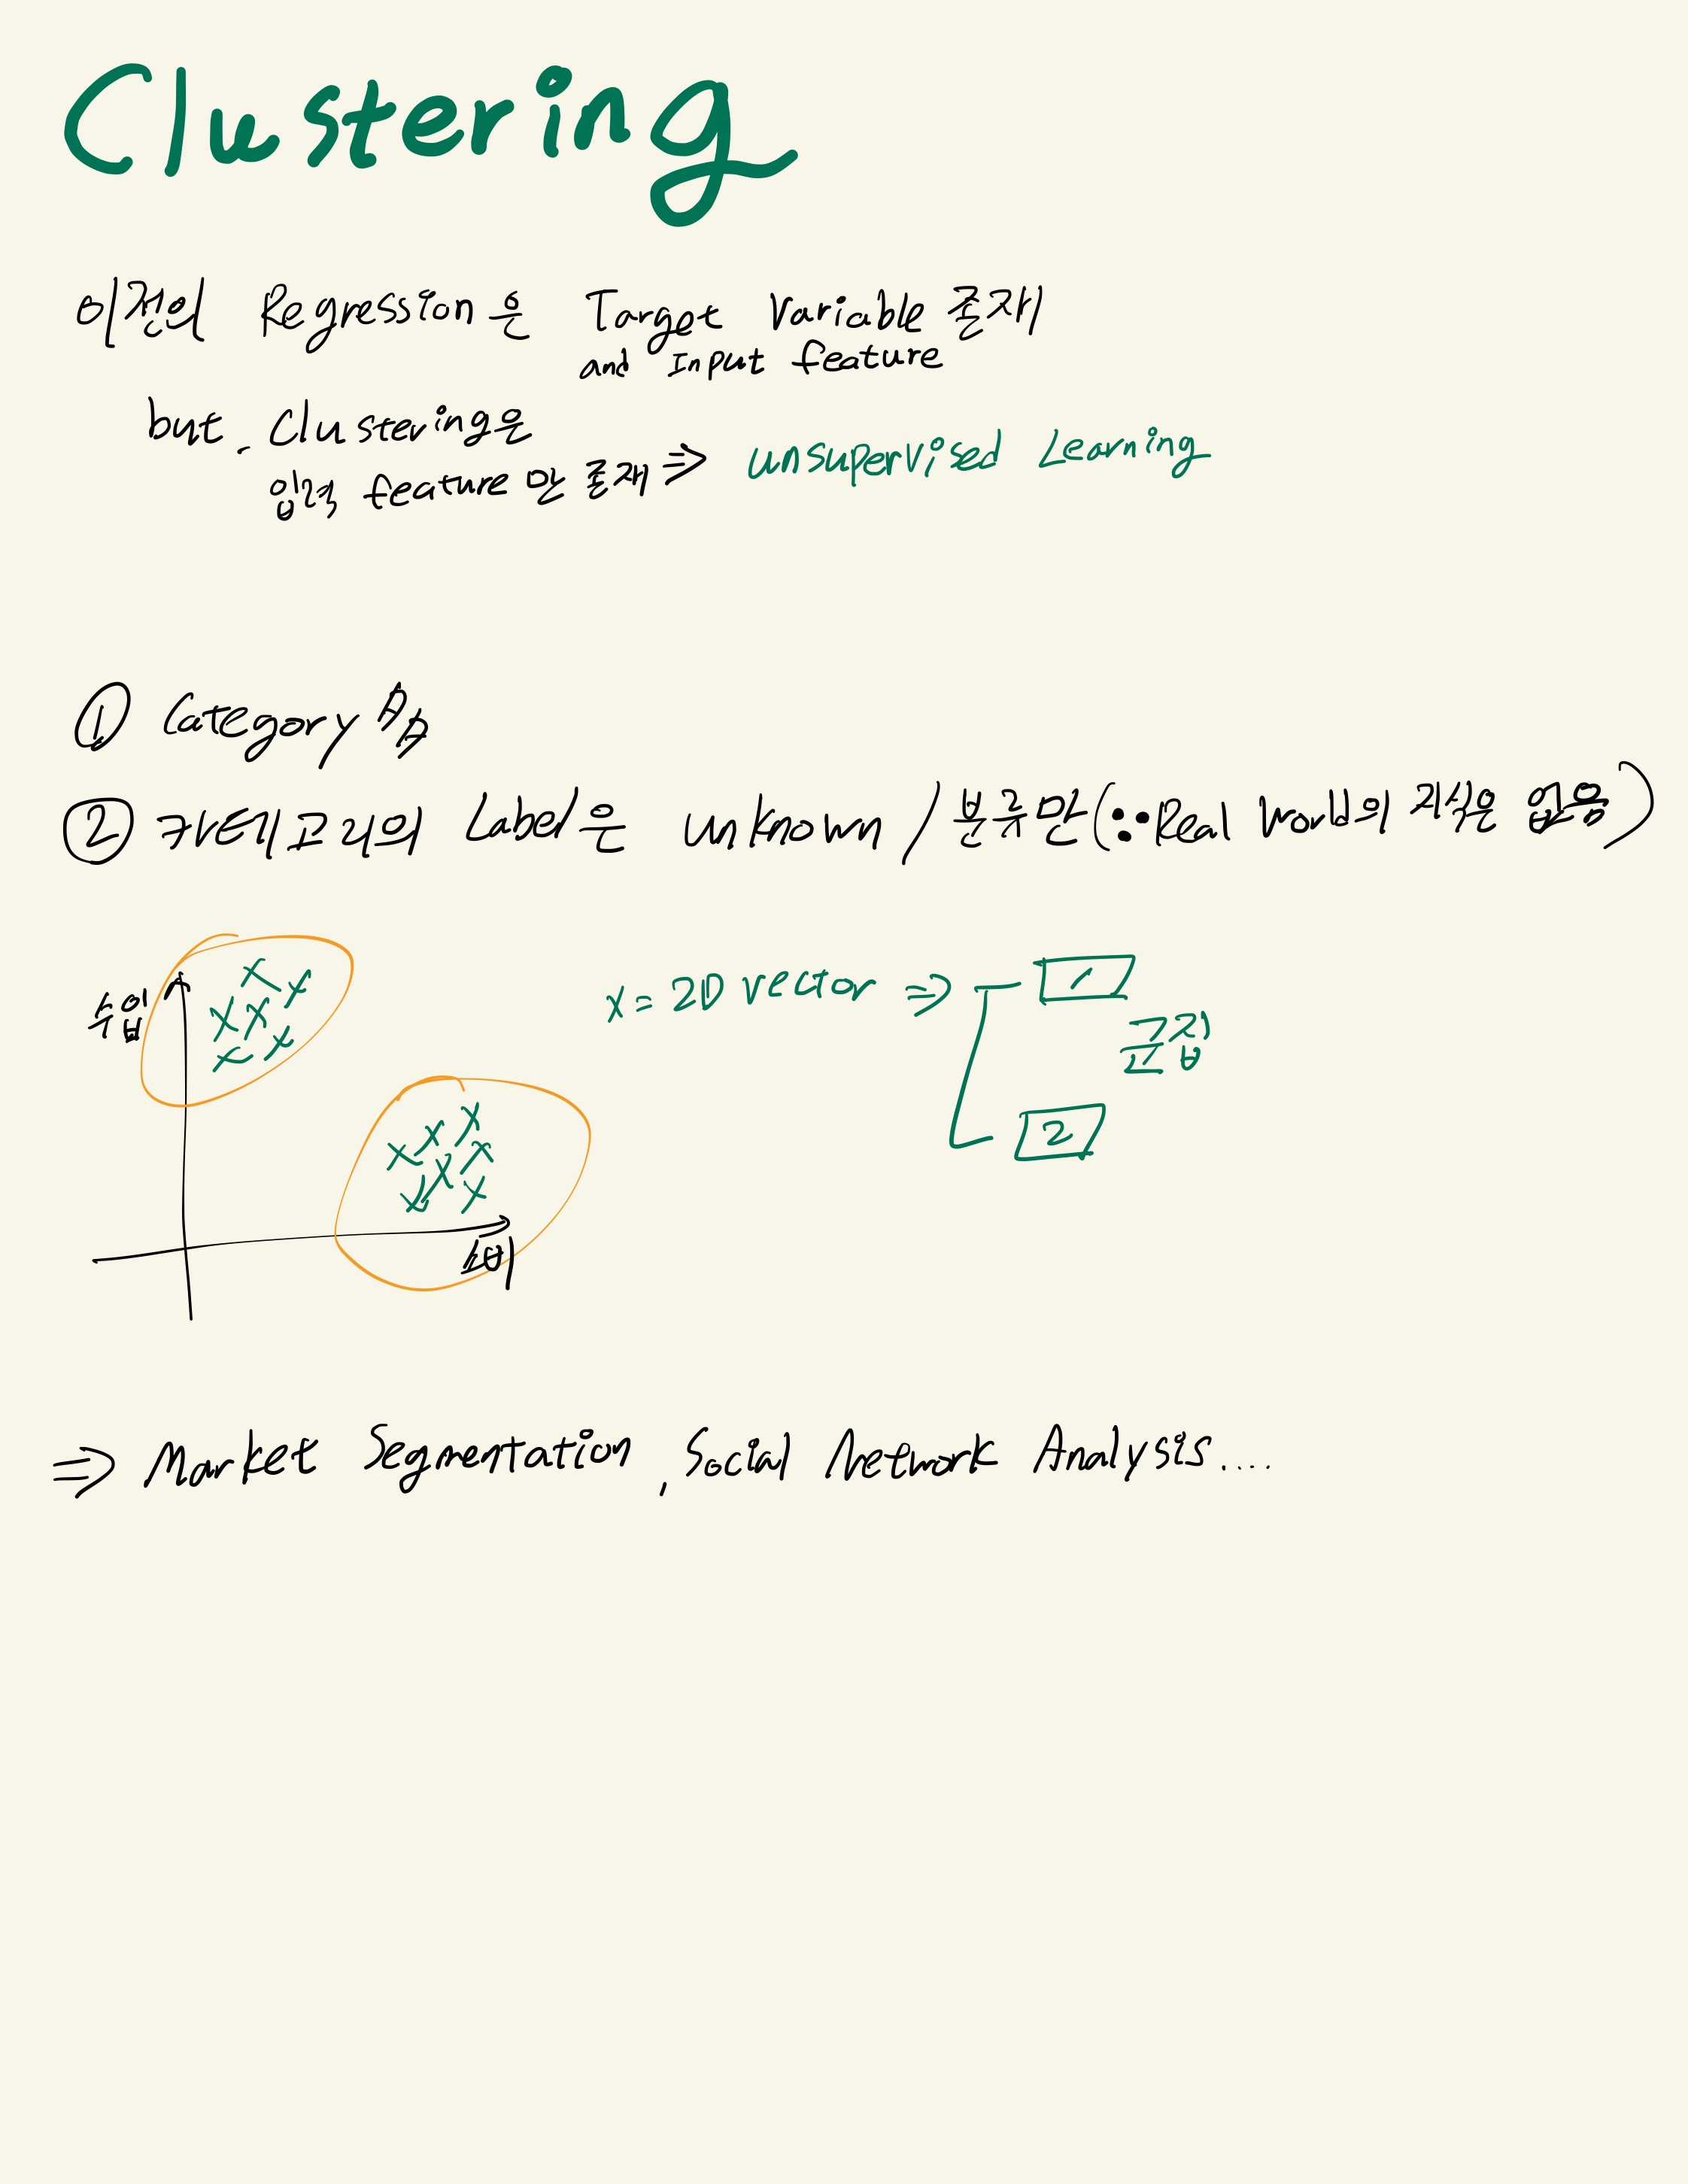 Clustering
이전의 Regression은 Target Variable 존재
and Input feature
but. Clustering은
입력 feature만 존재 ⇒ unsupervised Learning
① Category
② 카테고리의 Label은 unknown / 분류만 (∵ Real World의 지식은 없음)
수입
x = 2D vector ⇒ 1
군집
2
소비
⇒ Market Segmentation, Social Network Analysis....